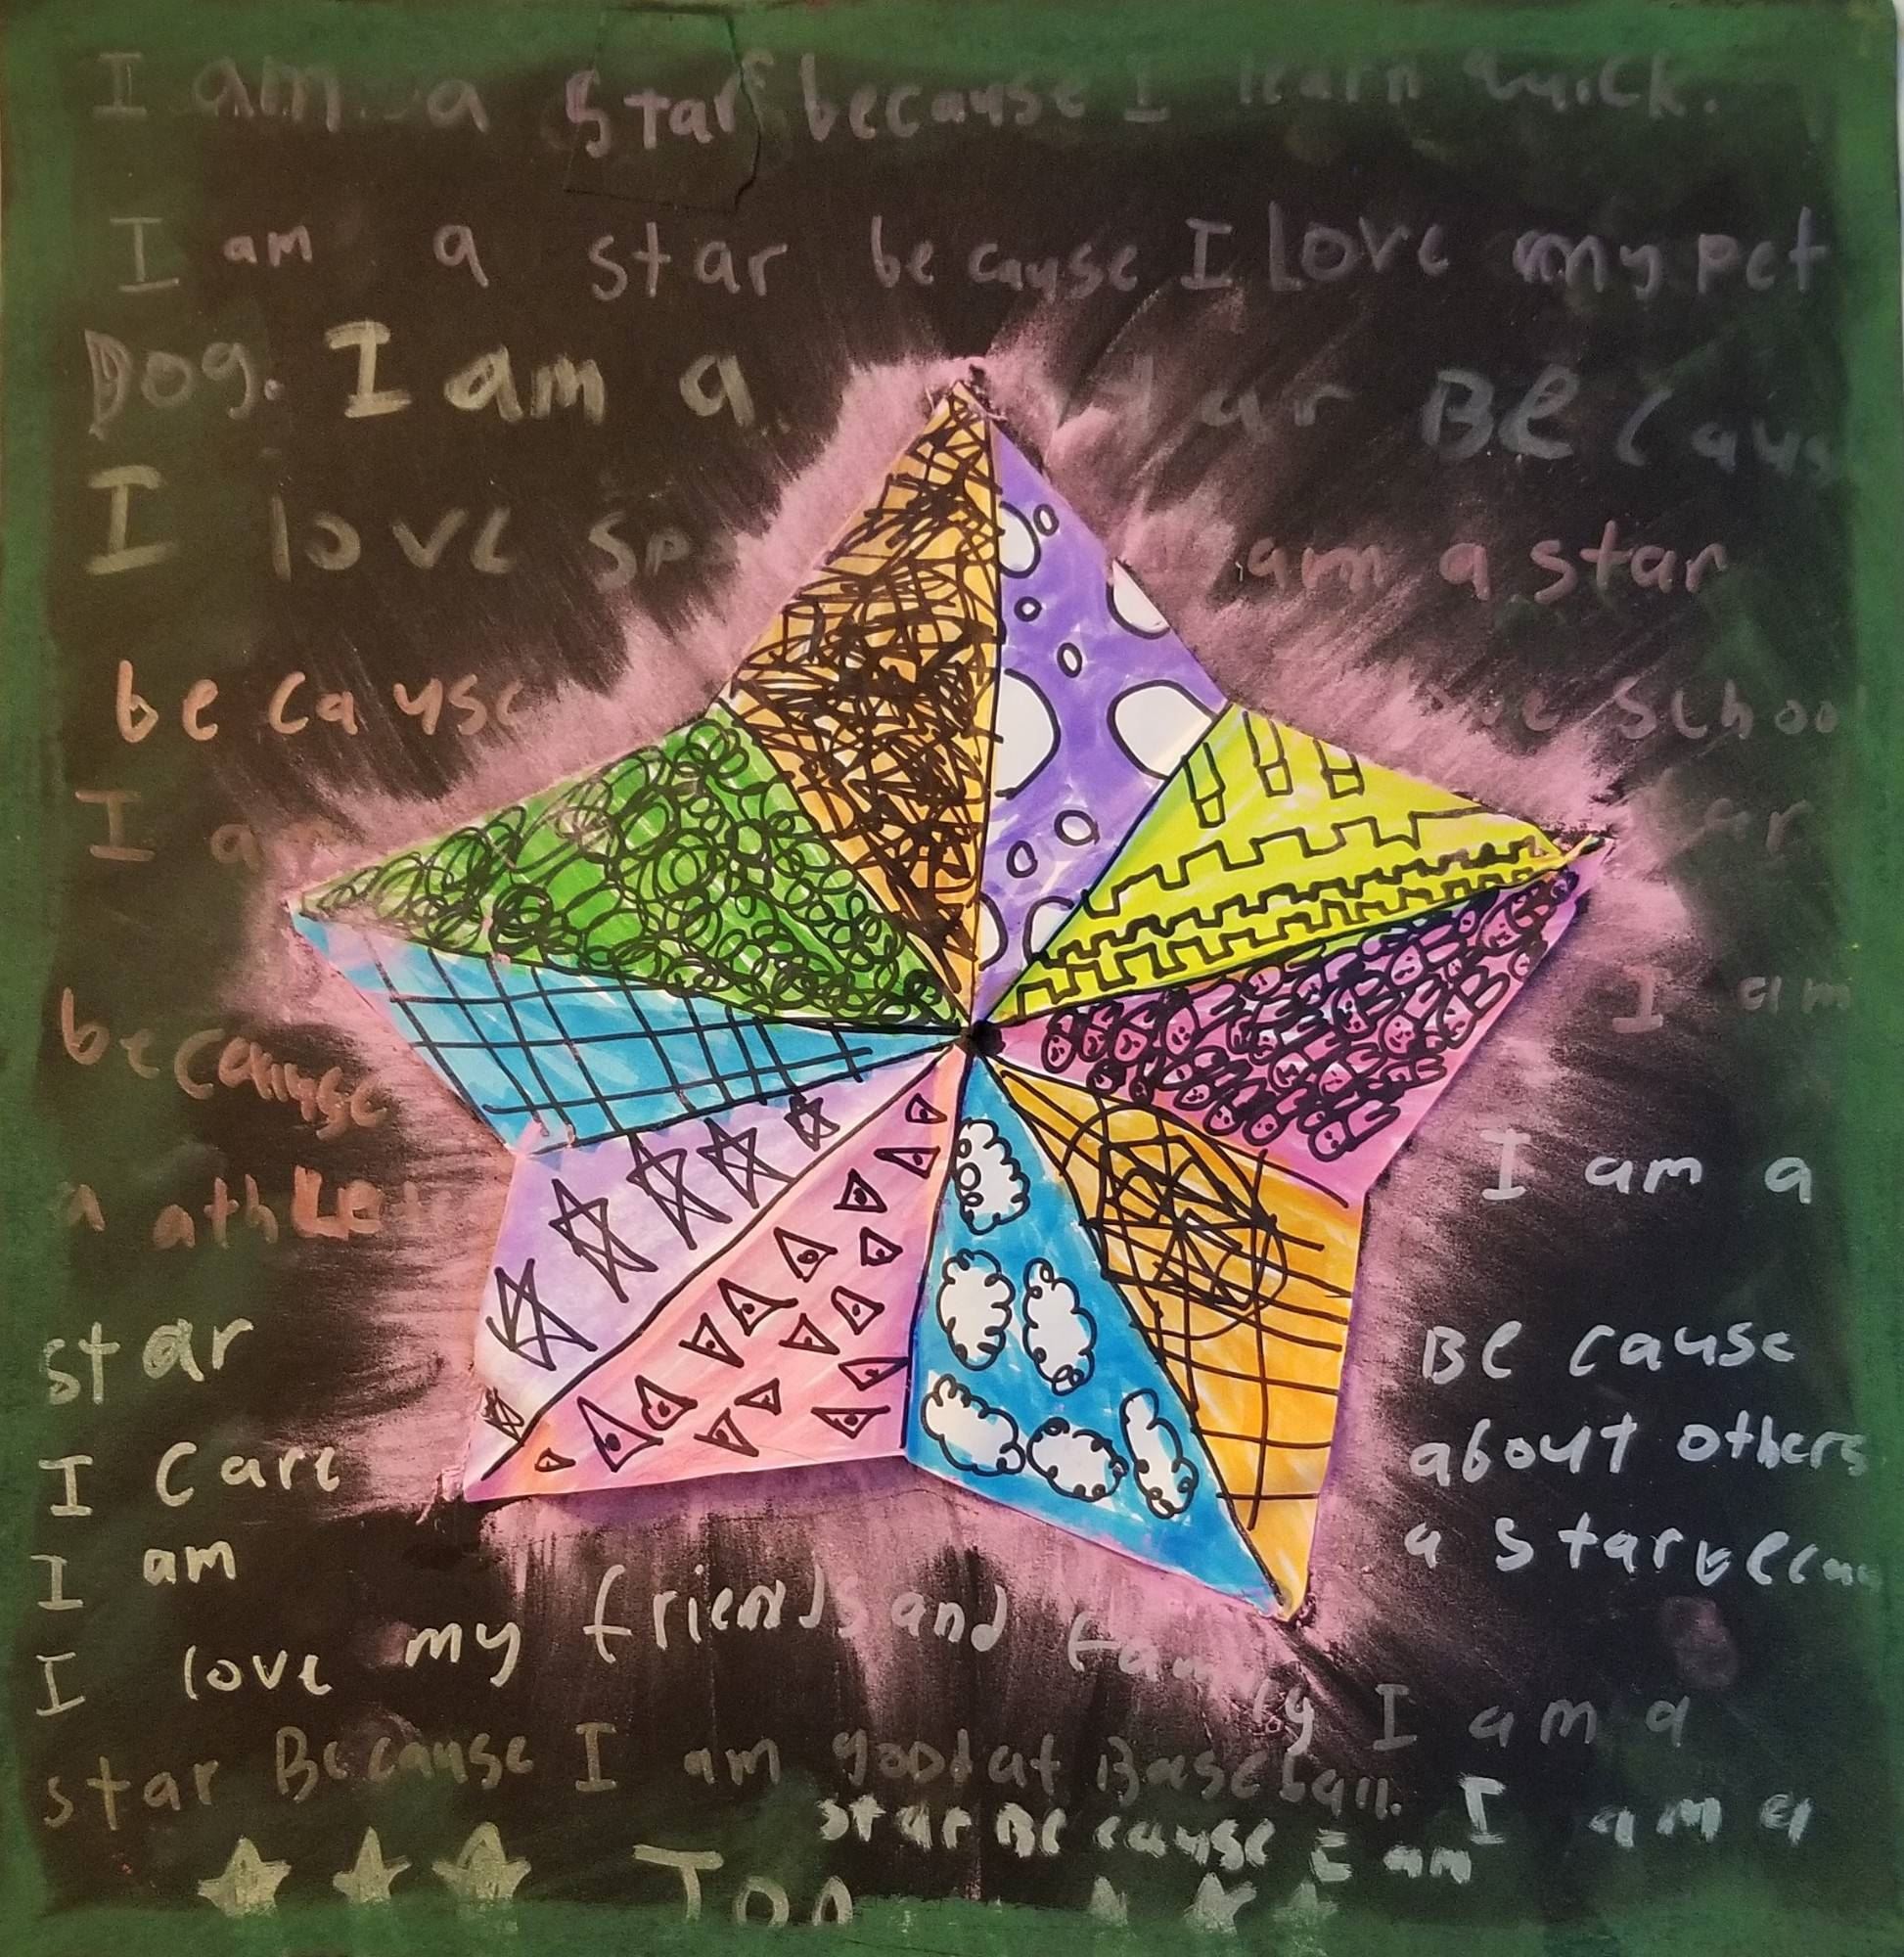 I am a star because I learn quick.
I am a star because I Love my pet
Dog. I am a tar BeCaus
I love sp am a star
because ve schoo
I am ar
because I am
a athlet I am a
star Because
I care about others
I am a star becau
I love my friends and family I am a
star Because I am good at Baseball. I am a
star Because I am